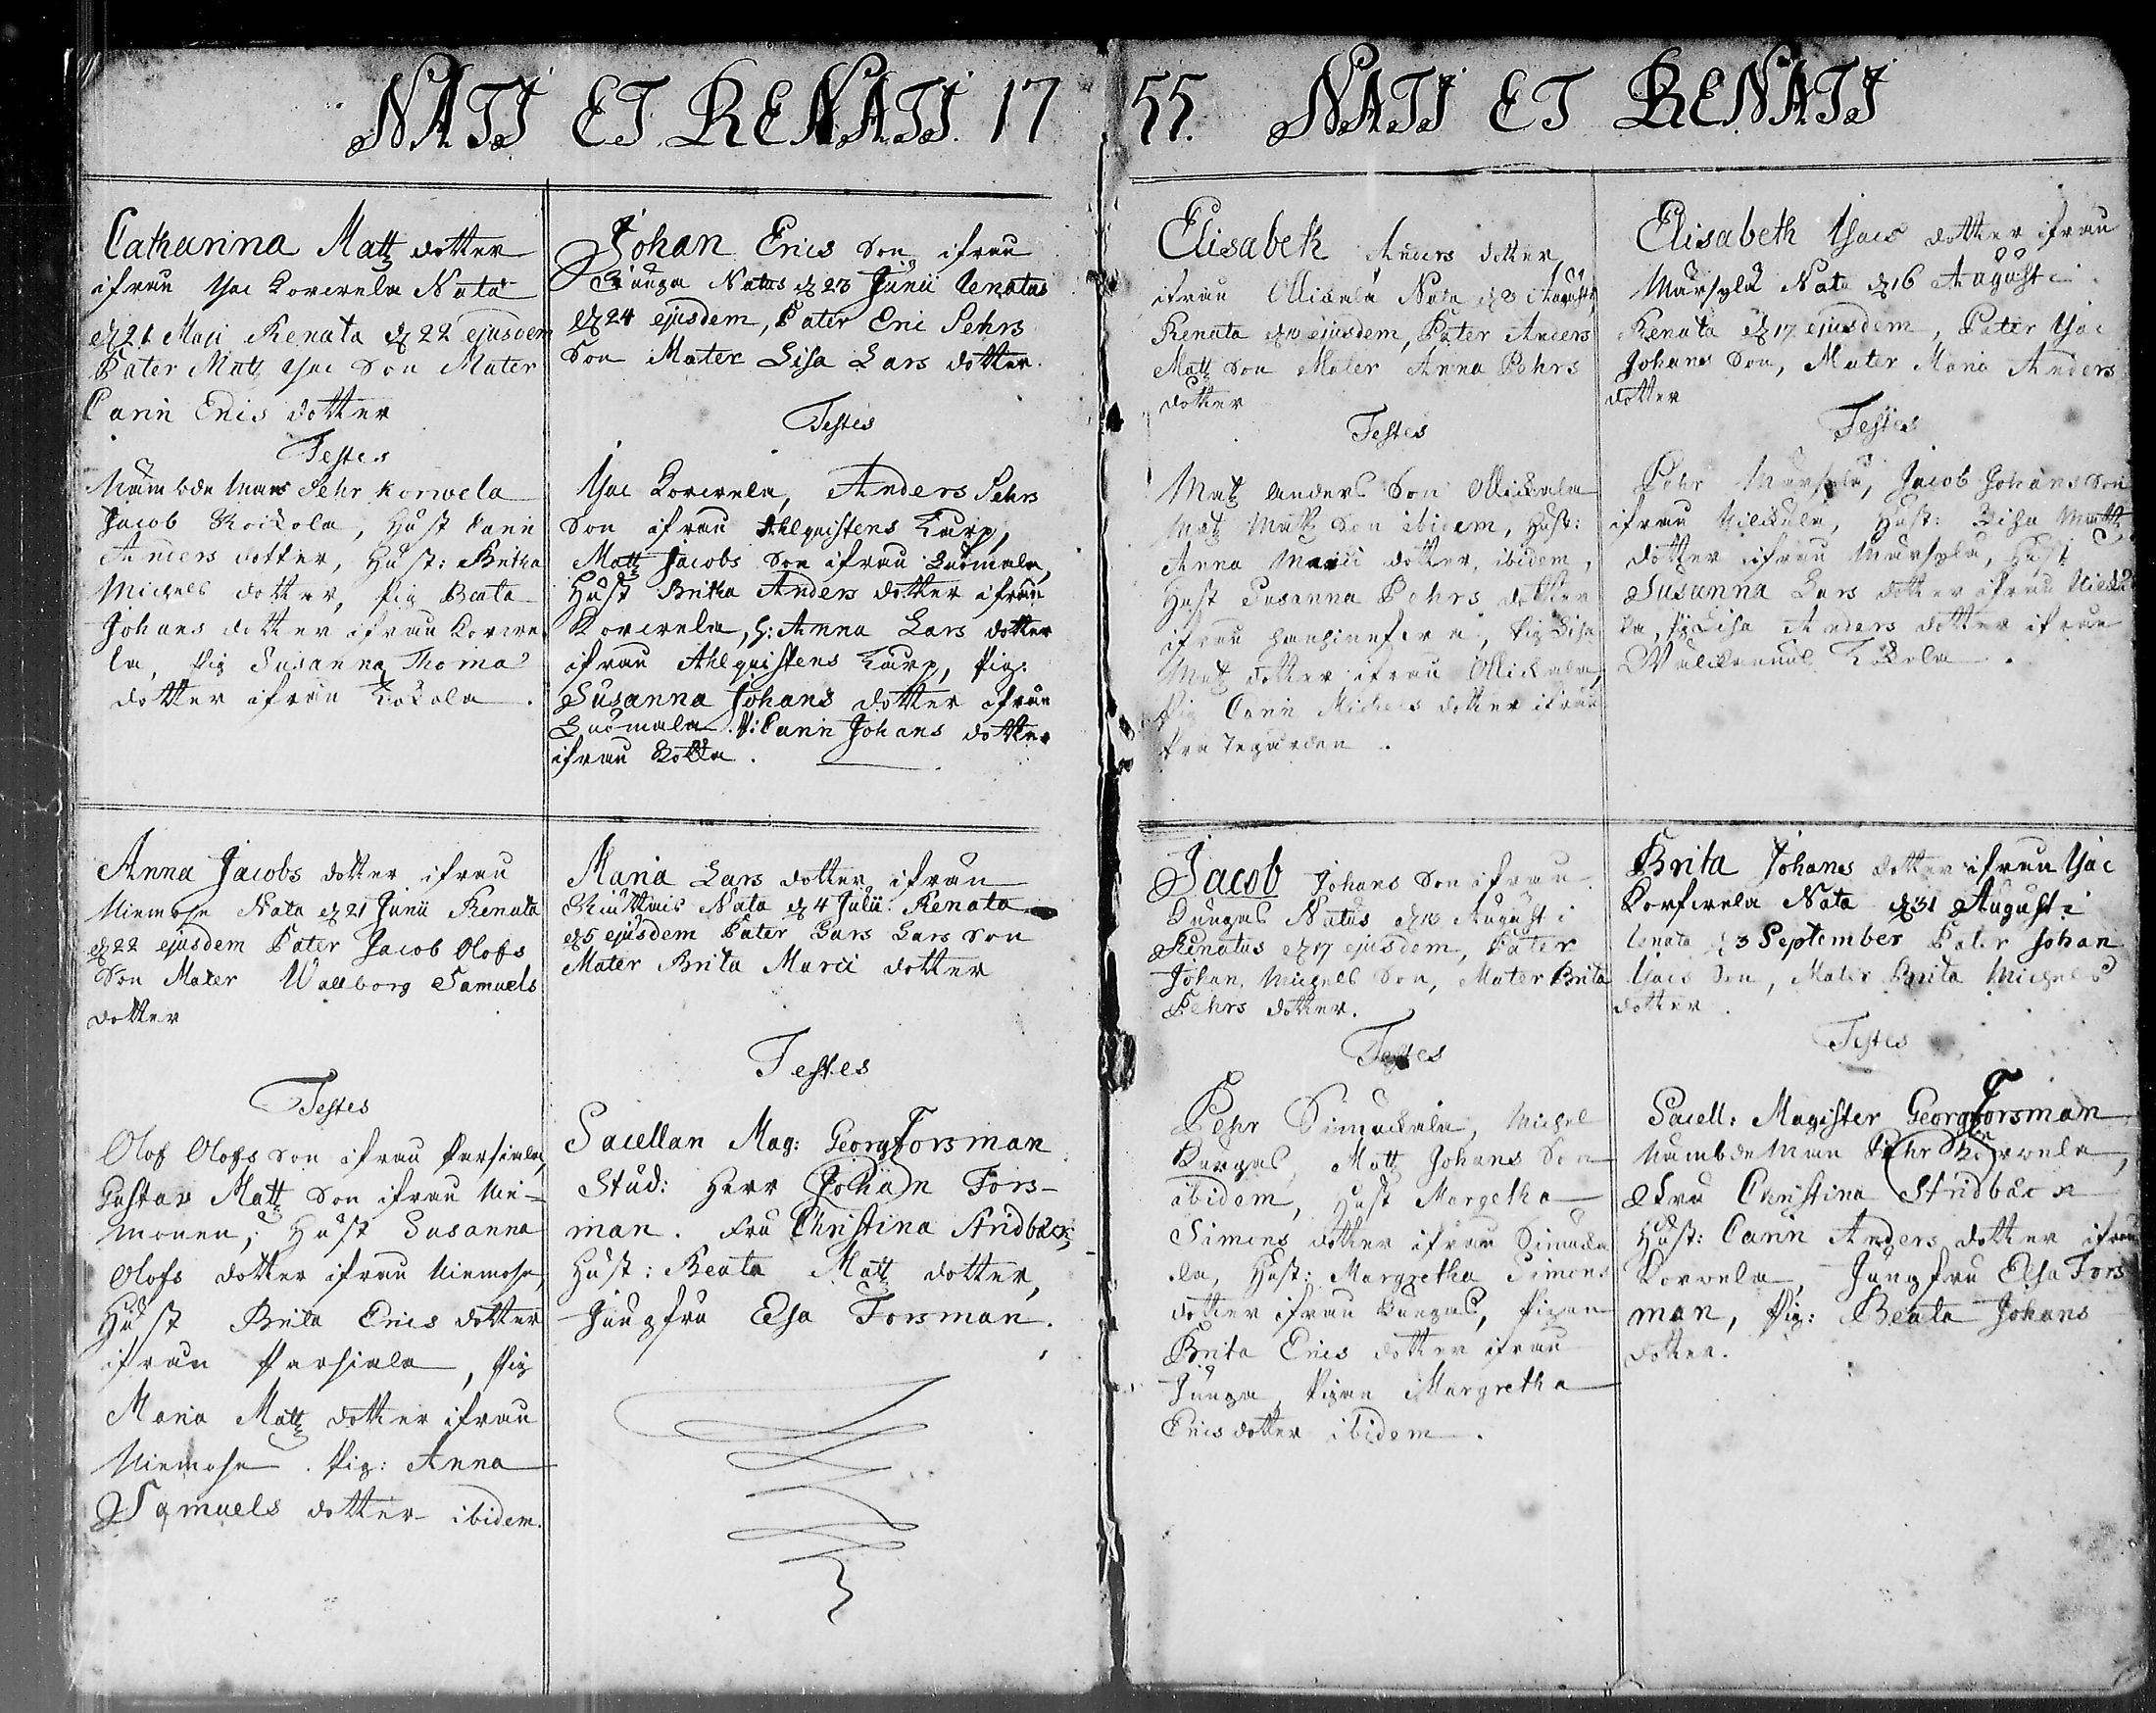 NATI ET RENATI 17
55. NATI ET RENATI
Catharina Matz dotter
ifrån Isac Korwela Nata
d 21 Maji Renata d 22 ejusdem
Pater Matz Isac Son Mater
Carin Erics dotter
Testes
Nämbde Man Pehr Korwela
Jacob Hust Carin
Anders dotter, Hust: Britha
Michels dotter, Pig Beata
Johans dotter ifrån Korwe
la, Pig Susanna Thomas
dotter ifrån Kåkola.
Johan Erics Son ifrån
Junga Natus d 23 Junii Renatus
d 24 ejusdem, Pater Eric Pehrs
Son Mater Lisa Lars dotter.
Testes
Isac Korwela, Anders Pehrs
Son ifrån Ahlquistens Torp,
Matz Jacobs Son ifrån Luomala,
Hust Britha Anders dotter ifrån
Korwela, H: Anna Lars dotter
ifrån Ahlquistens Torp, Pig:
Susanna Johans dotter ifrån
Luomala. P: Carin Johans dotter
ifrån
Anna Jacobs dotter ifrån
Niemose Nata d 21 Junii Renata
d 22 ejusdem Pater Jacob Olofs
Son Mater Wallborg Samuels
dotter
Testes
Olof Olofs Son ifrån Parsiala,
Gustav Matz Son ifrån Nie-
monen, Hust Susanna
Olofs dotter ifrån Niemose,
Hust Brita Erics dotter
ifrån Parsiala, Pig
Maria Matz dotter ifrån
Niemose. Pig: Anna
Samuels dotter ibidem.
Maria Lars dotter ifrån
Nata d 4 Julii Renata
d 5 ejusdem Pater Lars Lars Son
Mater Brita Marci dotter
Testes
Sacellan Mag: Georg Forsman
Stud: Herr Johan Fors-
man. Fru Christina Stridbäck,
Hust: Beata Matz dotter,
Jungfru Elsa Forsman.
Elisabeth Anders dotter
ifrån Ollikala Nata d 8 Augusti
Renata d 10 ejusdem, Pater Anders
Matz Son Mater Anna Pehrs
dotter
Testes
Matz Anders Son Ollikala
Matz Matz Son ibidem, Hust:
Anna Marci dotter, ibidem,
Hust Susanna Pehrs dotter
ifrån Pig Lisa
Matz dotter ifrån Ollikala,
Pig Carin Michels dotter ifrån
Prästegården.
Elisabeth Isacs dotter ifrån
Marsyla Nata d 16 Augusti
Renata d 17 ejusdem, Pater Isac
Johans Son, Mater Maria Anders
dotter
Testes
Pehr Marsyla, Jacob Johans Son
ifrån Hust: Lisa Matz
dotter ifrån Marsyla, Hust
Susanna Lars dotter ifrån
la, Pig Lisa Anders dotter ifrån
Kåkola.
Jacob Johans Son ifrån
Kungas Natus d 16 Augusti
Renatus d 17 ejusdem, Pater
Johan Michels Son, Mater Brita
Pehrs dotter.
Testes
Pehr Simukala, Michel
Kungas, Matz Johans Son
ibidem, Hust Margetha
Simons dotter ifrån Simuka
la, Hust: Margretha Simons
dotter ifrån Kungas, Pigan
Brita Erics dotter ifrån
Junga, Pigan Margretha
Erics dotter ibidem.
Brita Johans dotter ifrån Isac
Korfwela Nata d 31 Augusti
Renata d 3 September Pater Johan
Isacs Son, Mater Brita Michels
dotter.
Testes
Sacell: Magister Georg Forsman
Nämbde Man Pehr Korwela,
Fru Christina Stridbäck
Hust: Carin Anders dotter ifrån
Korwela, Jungfru Elsa Fors
man, Pig: Beata Johans
dotter.